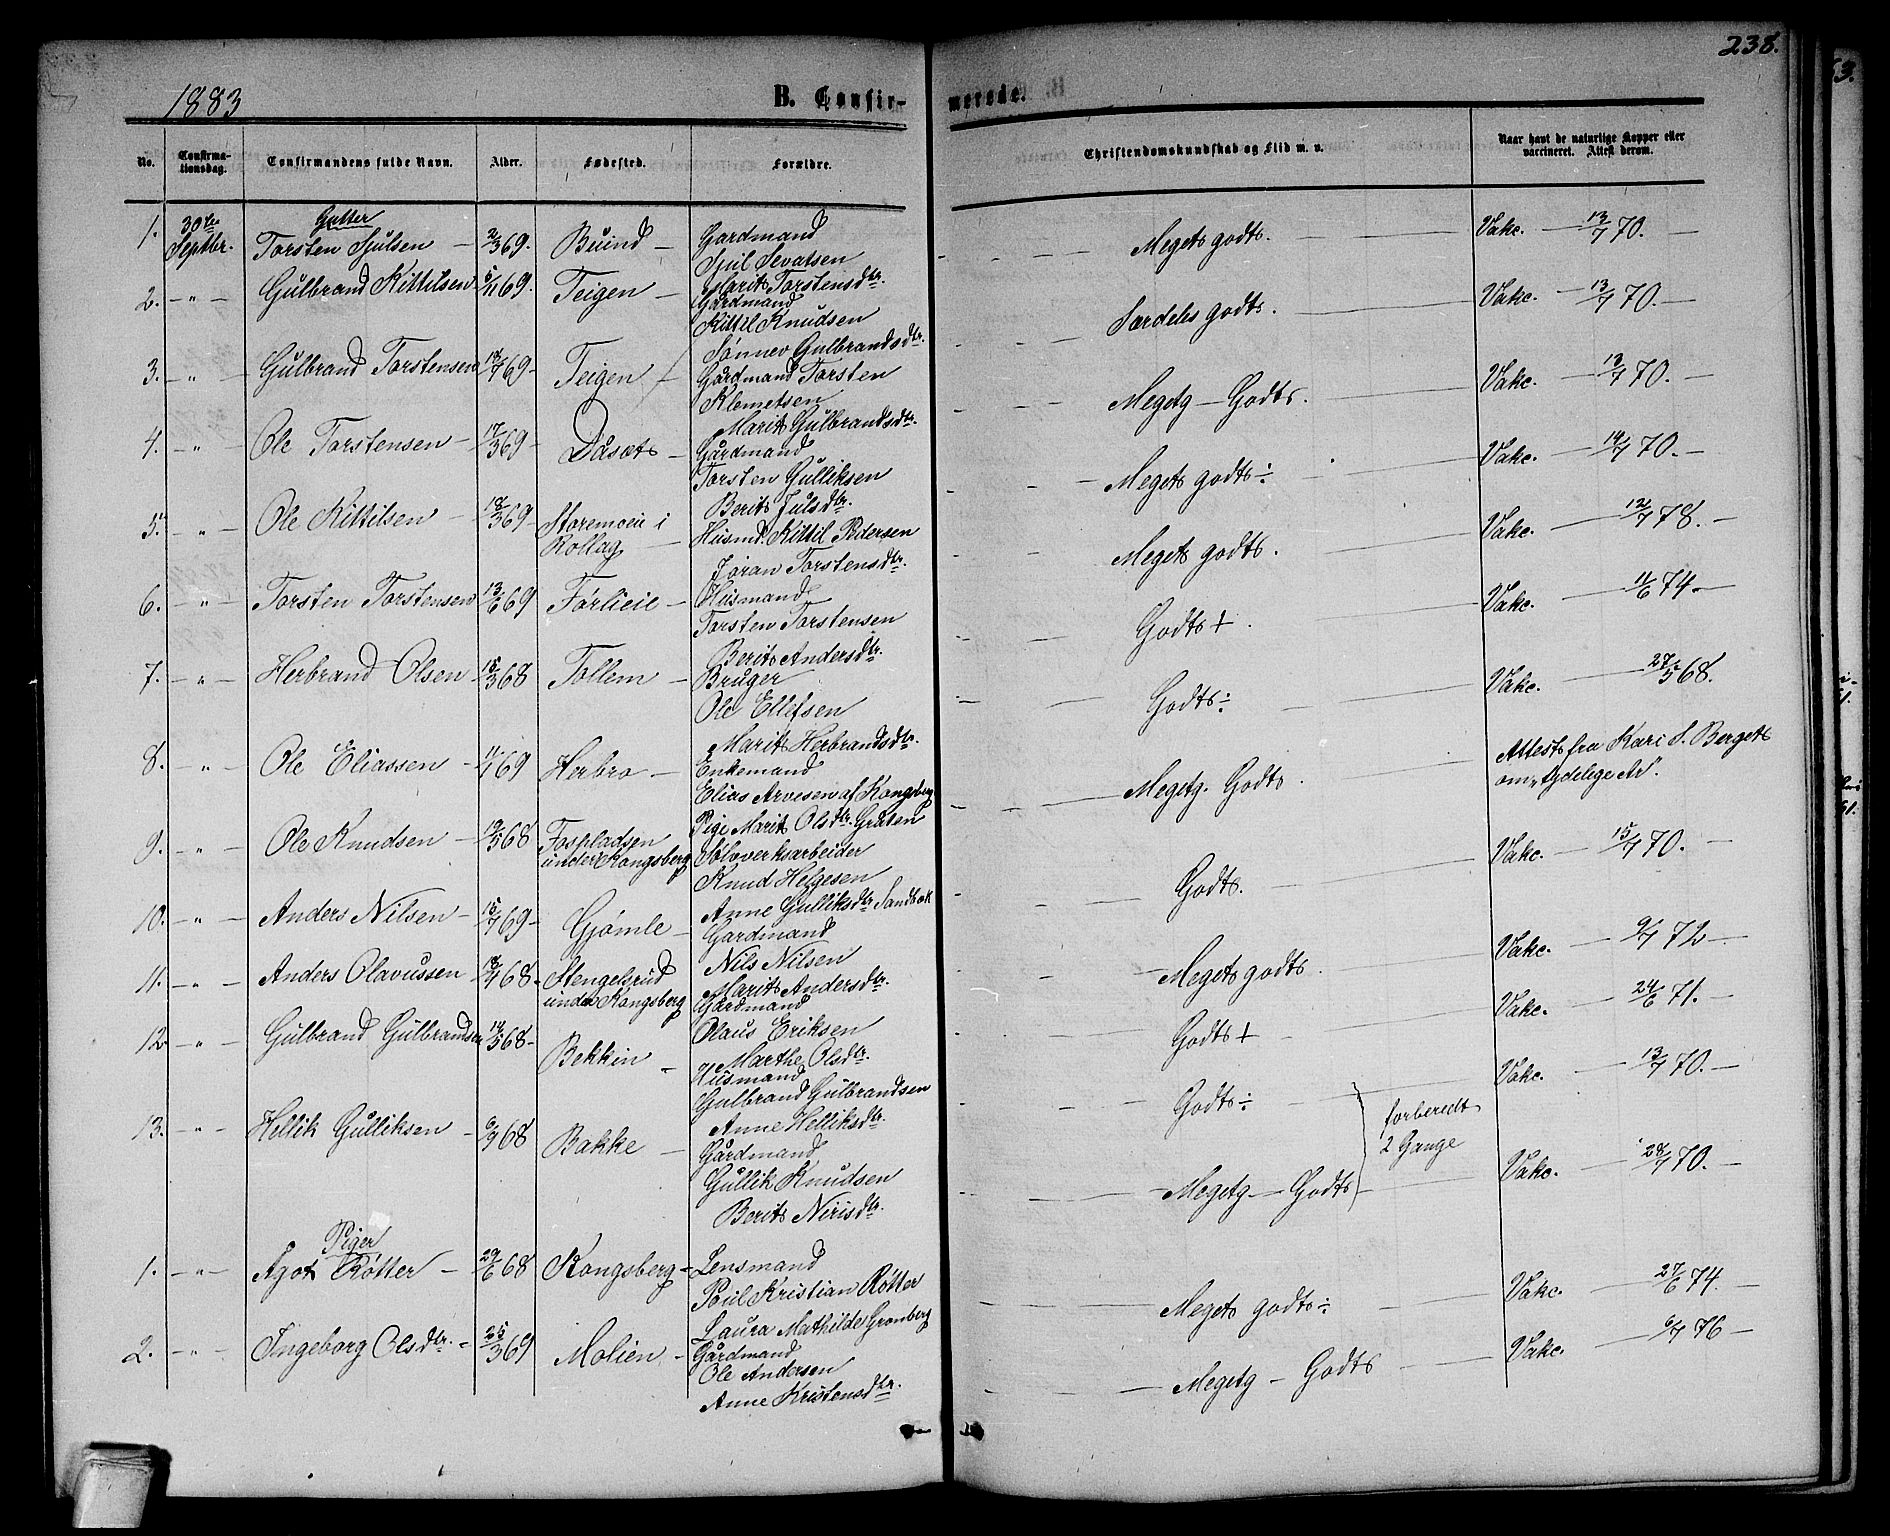 238.
1883
B. Confir-
merede.
No.
Confirma-
tionsdag.
Confirmandens fulde Navn.
Alder.
Fødested.
Forældre.
Christendomskundskab og Flid m. v.
Naar havt de naturlige Kopper eller
vaccineret. Attest derom.
Gutter
1. 30te Septbr. Torsten Sjulsen — 2/3 69. Buind — Gardmand
Sjul Sevatsen
Marit Torstensdtr.
Meget godt. Vakc. — 13/7 70. —
2. — " — Gulbrand Kittilsen 5/11 69. Teigen — Gårdmand
Kittil Knudsen
Sønnev Gulbrandsdtr.
Særdeles godt. Vakc. — 13/7 70. —
3. — " — Gulbrand Torstensen 69 — Teigen — Gårdmand Torsten
Klemetsen
Marit Gulbrandsdtr.
Megetg — Godt. Vakc. — 13/7 70. —
4. — " — Ole Torstensen — 17/3 69 — Dåset — Gårdmand
Torsten Gulliksen
Berit Julsdtr.
Meget godt ÷ Vakc. — 14/7 70. —
5. — " — Ole Kittilsen — 18/3 69 — Storemoeie i
Rollag — Husmd. Kittil Pedersen
Jøran Torstensdtr.
Meget godt. Vakc. — 12/7 78. —
6. — " — Torsten Torstensen 13/6 69 Førlieie — Husmand
Torsten Torstensen
Berit Andersdtr.
Godt + Vakc. — 11/6 74. —
7. — " — Herbrand Olsen 15/3 68 Tollem — Bruger
Ole Ellefsen
Marit Herbrandsdtr.
Godt ÷ Vakc. — 27/5 68.
8. — " — Ole Eliassen — 69 Herbro — Enkemand
Elias Arvesen af Kongsberg
Pige Marit Olsdtr. Gråten
Megetg. Godt Attest fra Kari S. Berget
om "tydelige Ar".
9. — " — Ole Knudsen — 19/5 68 Fospladsen
under Kongsberg Sølvverksarbeider
Knud Helgesen
Anne Gulliksdtr. Sandbæk
Godt. Vakc. — 15/7 70. —
10. — " — Anders Nilsen — 15/7 69 — Gjømle — Gardmand
Nils Nilsen
Marit Andersdtr.
Meget godt. Vakc. — 9/7 72 —
11. — " — Anders Olavussen — 68 — Stengelsrud
under Kongsberg Gårdmand
Olaus Eriksen
Marthe Olsdtr.
Godt + Vakc. — 24/6 71. —
12 — " — Gulbrand Gulbrandsen 14/5 68 — Bekkin — Husmand
Gulbrand Gulbrandsen
Anne Helliksdtr.
Godt ÷ forberedt
2 Gange Vakc. — 13/7 70. —
13. — " — Hellik Gulliksen — 6/9 68 Bakke — Gårdmand
Gullik Knudsen
Berit Nirisdtr.
Megetg — Godt Vakc. — 28/7 70. —
Piger
1. — " — Agot Røtter — 29/6 68 Kongsberg — Lensmand
Poul Kristian Røtter
Laura Mathilde Grønberg
Meget godt ÷ Vakc. — 27/6 74. —
2. — " — Ingeborg Olsdtr. — 25/3 69 Molien — Gårdmand
Ole Andersen
Anne Kristensdtr.
Megetg — Godt Vakc. — 6/7 76 —